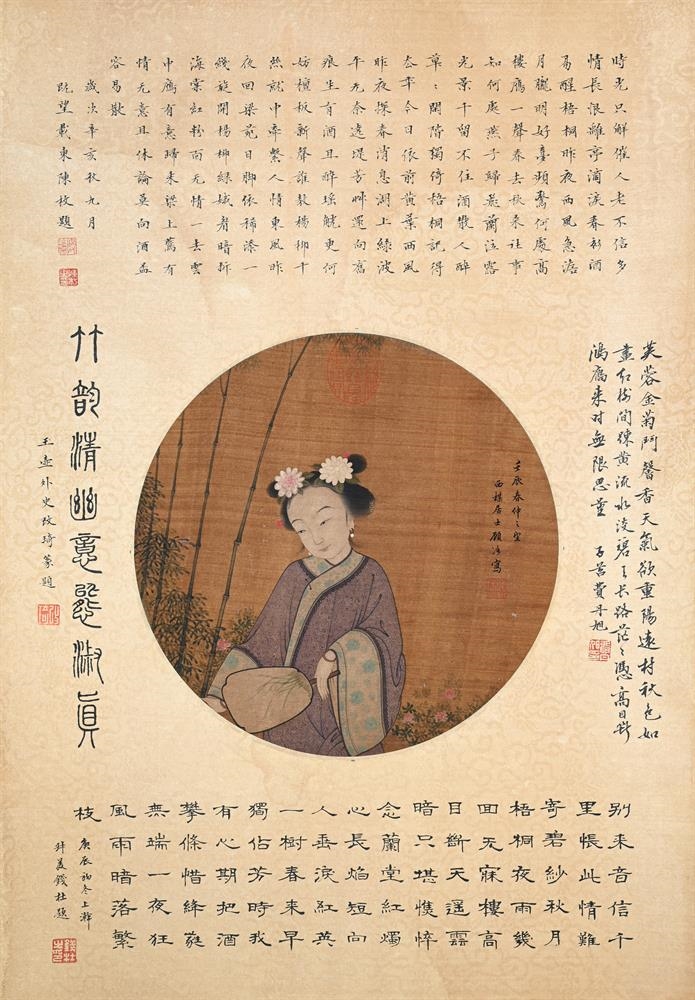 時光只解催人老不信多
情長恨離亭滴淚春衫酒
易醒梧桐昨夜西風急澹
月朧明好夢頻驚何處高
樓鴈一聲春去秋來往事
知何處燕子歸飛蘭泣露
光景千留不住酒散人醉
草〻閒階獨倚梧桐記得
去年今日依前黃葉西風
昨夜探春消息湖上綠波
平无奈遶堤芳艸還向舊
痕生有酒且醉瑤觥更何
妨檀板新聲誰教楊柳千
絲就中牽繫人情東風昨
夜回梁苑日腳依稀添一
綫旋開楊柳綠蛾眉暗拆
海棠紅粉面无情一去雲
中鴈有意歸來梁上鷰有
情无意且休論莫向酒盃
容易散
歲次辛亥秋九月
眺望戴東陳枚題
芙蓉金菊鬥馨香天氣欲重陽遠村秋色如
畫紅樹間疎黃流水淡碧天長路茫〻憑高目斷
鴻鴈來時無限思量 子苕費丹旭
壬辰春仲之望
西楳居士顧洛寫
竹韵清幽意態淑真
玉壺外史改琦篆題
別來音信千
里悵此情難
寄碧紗秋月
梧桐夜雨幾
回无寐樓高
目斷天遥雲
暗只堪憔悴
念蘭堂紅燭
心長焰短向
人垂淚紅英
一樹春來早
獨佔芳時我
有心期把酒
攀條惜絳蕤
無端一夜狂
風雨暗落繁
枝
庚辰初冬上澣
拜美錢杜題